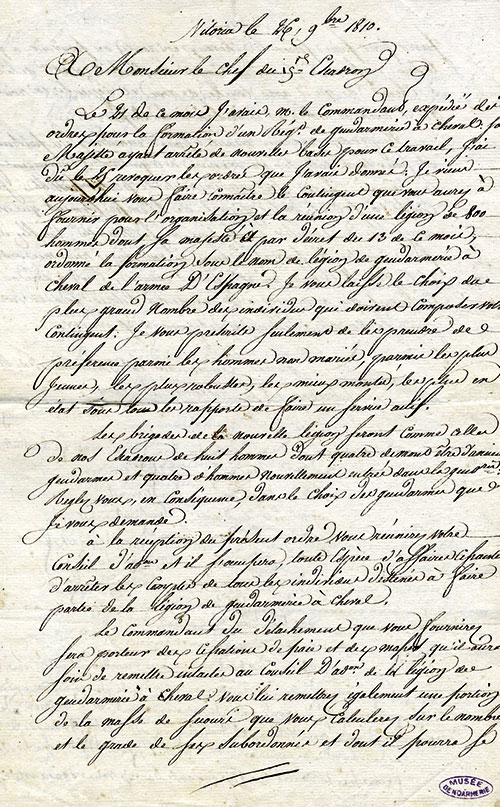 Vitoria le 26, 9bre 1810.
A Monsieur le Chef du 15e Escadron
Le 21 de ce mois J'avais, m. le Commandant, expédié des
ordres pour la formation d'un Régt. de gendarmerie à cheval. Sa
Majesté ayant arrêté de nouvelles bases pour ce travail, J'ai
dû le 25 revoquer les ordres que J'avais donné. Je viens
aujourd'hui vous faire connaître le Contingent que vous aurez à
fournir pour l'organisation et la réunion d'une légion de 800
hommes dont Sa majesté a par décret du 13 de ce mois,
ordonné la formation sous le nom de légion de gendarmerie à
cheval de l'armée D'Espagne. Je vous laisse le choix du
plus grand Nombre des individus qui doivent Composer votre
Contingent. Je vous prescrits seulement de les prendre de
préférence parmi les hommes non mariés, parmi les plus
Jeunes, les plus robustes, les mieux montés, les plus en
état sous tous les rapports de faire un service actif.
Les brigades de la nouvelle légion seront comme celles
de nos Escadrons de huit hommes dont quatre devront être d'anciens
gendarmes et quatre d'hommes Nouvellement entrés dans la gendrie
Reglez vous, en Conséquence, dans le Choix des gendarmes que
Je vous demande.
à la reception du présent ordre vous réunirez votre
Conseil d'adon et il s'occupera, toute Espèce d'affaire Cessante
d'arrêter les Comptes de tous les individus destinés à faire
partie de la légion de gendarmerie à Cheval.
Le Commandant du détachement que vous fournirez
sera porteur des Cessations de paie et des masses, qu'il aura
soin de remettre ensuite au Conseil D'adon de la légion de
gendarmerie à Cheval. Vous lui remettrez également une portion
de la masse de secours que vous Calculerez sur le nombre
et le grade de ses subordonnés et dont il pourra se
MUSÉE
GENDARMERIE